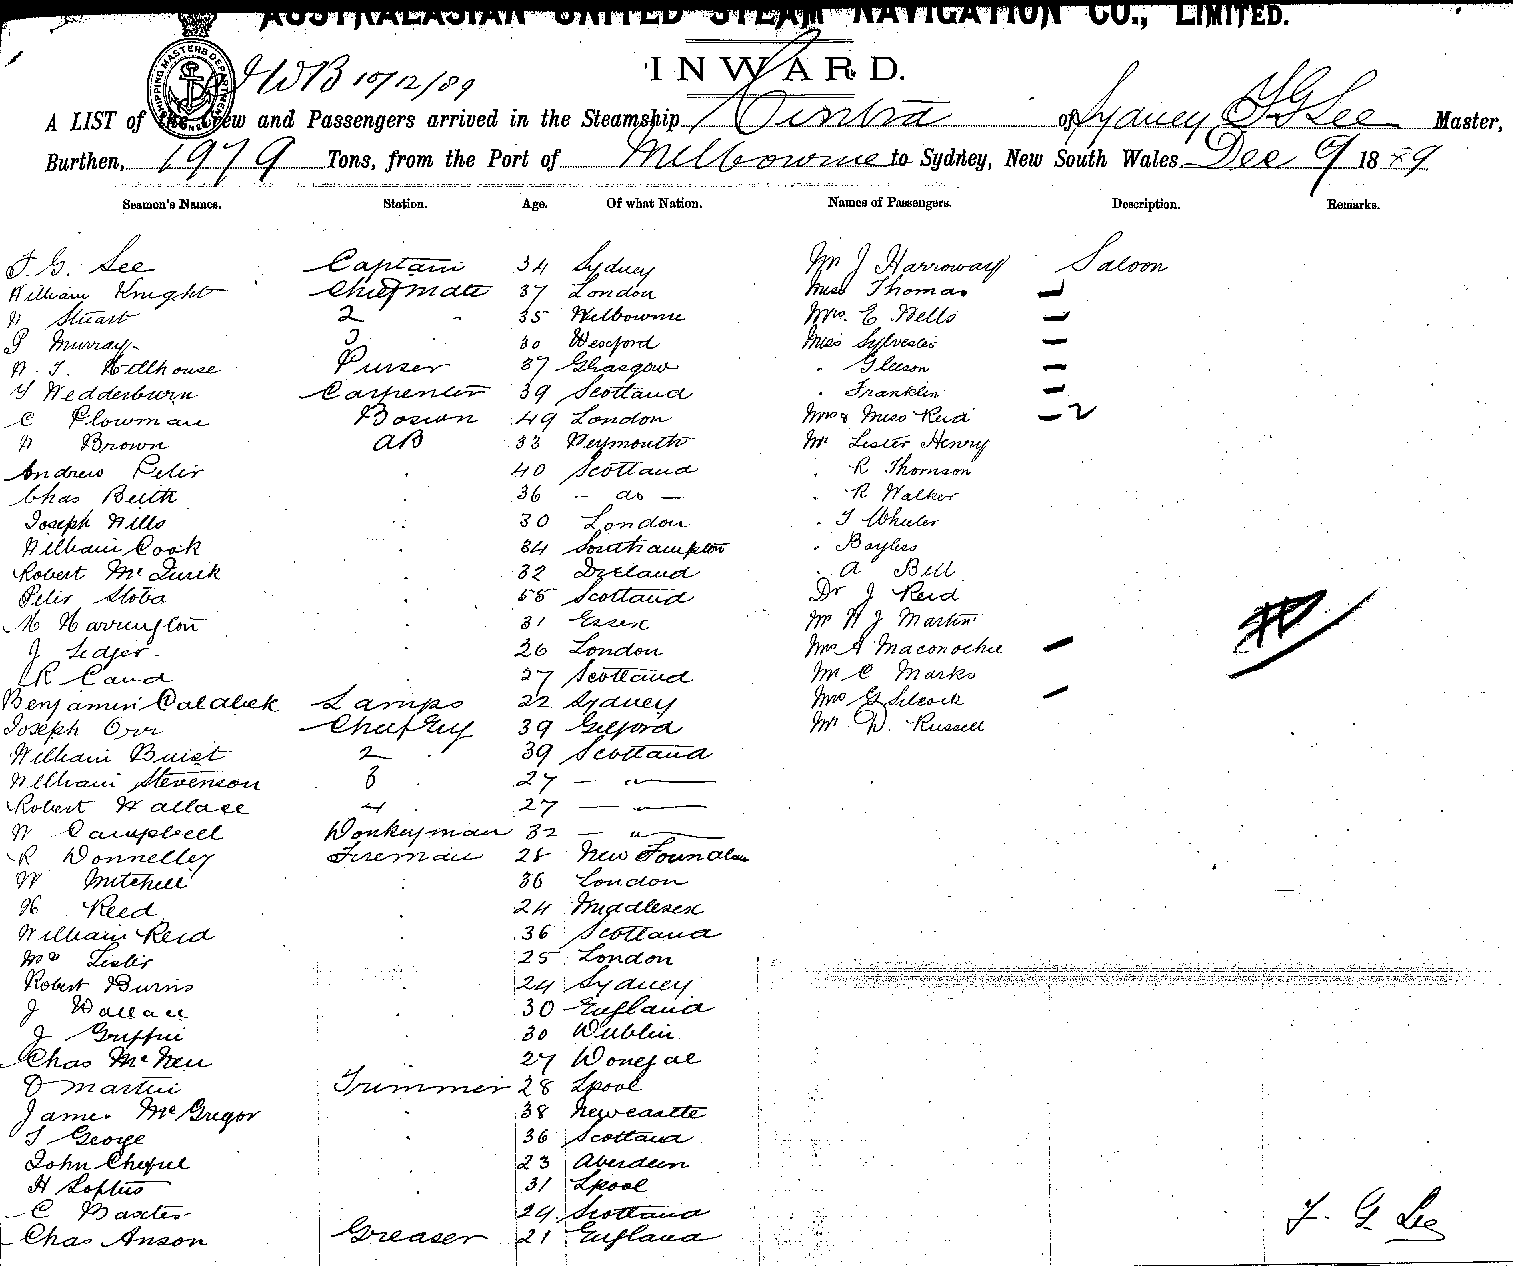 AUSTRALASIAN UNITED STEAM NAVIGATION CO., LIMITED.
INWARD.
10/12/89
A LIST of the Crew and Passengers arrived in the Steamship Cintra of Sydney T G Lee Master,
Burthen, 1979 Tons, from the Port of Melbourne to Sydney, New South Wales Dec 9 1889
Seamen's Names. Station. Age. Of what Nation. Names of Passengers. Description. Remarks.
T. G. Lee Captain 34 Sydney Mr J Harroway Saloon
William Knight Chief mate 37 London Miss Thomas
W Stuart 2 35 Melbourne Mrs. E Wells
P Murray 3 30 Wexford Miss Sylvester
W. T. Hillhouse Purser 37 Glasgow Gleeson
T Wedderburn Carpenter 39 Scotland Franklin
C Plowman Bosun 49 London Mrs & Miss Reid 2
W Brown AB 33 Weymouth Mr Lister Henry
Andrew Peter 40 Scotland R Thomson
Chas Beith 36 - do - R Walker
Joseph Wills 30 London T Wheeler
William Cook 34 Southampton Bayless
Robert Mc Turk 32 Ireland A Bell
Peter Stoba 55 Scotland Dr J Reid
M Harrington 31 Essex Mr W J Martin
J Ledger 26 London Mrs A Maconochie
R Caud 27 Scotland Mr C Marks
Benjamin Caldbek Lamps 22 Sydney Mrs G Silcock
Joseph Orr Chief Eng 39 Gilford Mr D. Russell
William Buist 2 39 Scotland
William Stevenson 3 27 — " —
Robert Wallace 4 27 — " —
W Campbell Donkeyman 32 — " —
R Donnelley Fireman 28 New Foundlan
W Mitchell 36 London
H Reed 24 Middlesex
William Reid 36 Scotland
Lister 25 London
Robert Burns 24 Sydney
J Wallace 30 England
J Griffin 30 Dublin
Chas Mc Neil 27 Donegal
D Martin Trimmer 28 Lpool
James McGregor 38 Newcastle
T George 36 Scotland
John 23 Aberdeen
H Loftus 31 Lpool
C Baxter 29 Scotland
Chas Anson Greaser 21 England
T. G. Lee